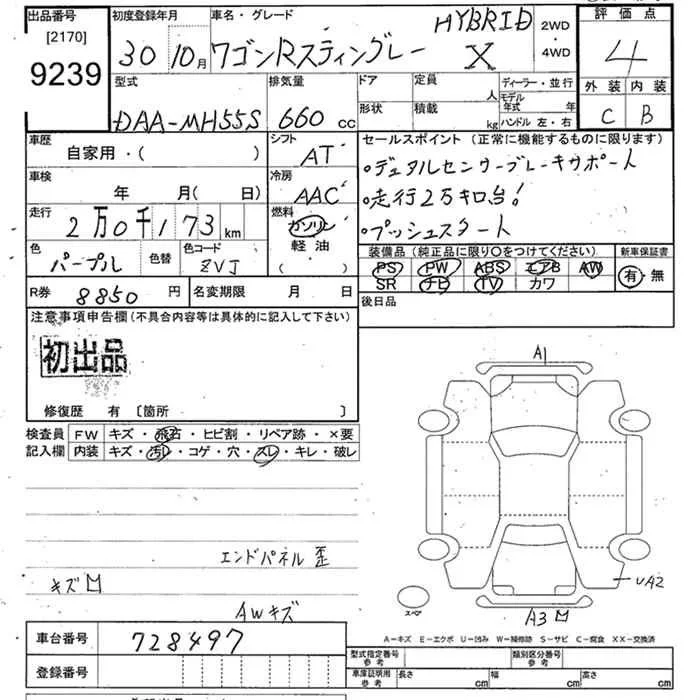 出品番号 初度登録年月 車名・グレード 評価点
[2170]
9239
30 10月 ワゴンRスティングレー HYBRID X 2WD・4WD 4
外装 内装
C B
型式 排気量 ドア 定員 人 ディーラー・並行
DAA-MH55S 660cc 形状 積載 kg モデル年式 年
ハンドル 左・右
車歴 シフト セールスポイント (正常に機能するものに限ります)
自家用・( ) AT
・デュアルセンサーブレーキサポート
車検 冷房
年 月( 日) AAC
・走行2万キロ台!
走行 燃料
2万0千173km ガソリン
軽油
( )
・プッシュスタート
色 パープル 色替 色コード ZVJ
装備品 (純正品に限り○をつけてください) 新車保証書
PS PW ABS エアB AW 有・無
SR ナビ TV カワ
R券 8850円 名変期限 月 日 後日品
注意事項申告欄(不具合内容等は具体的に記入して下さい)
初出品
修復歴 有 〔箇所 〕
検査員記入欄 FW キズ・飛石・ヒビ割・リペア跡・×要
内装 キズ・汚レ・コゲ・穴・スレ・キレ・破レ
A1
エンドパネル歪
キズ
UA2
AWキズ
スペア
A3
A-キズ E-エクボ U-凹み W-補修跡 S-サビ C-腐食 XX-交換済
車台番号 728497
型式指定番号 参考 類別区分番号 参考
登録番号
車庫証明用 参考 長さ cm 幅 cm 高さ cm